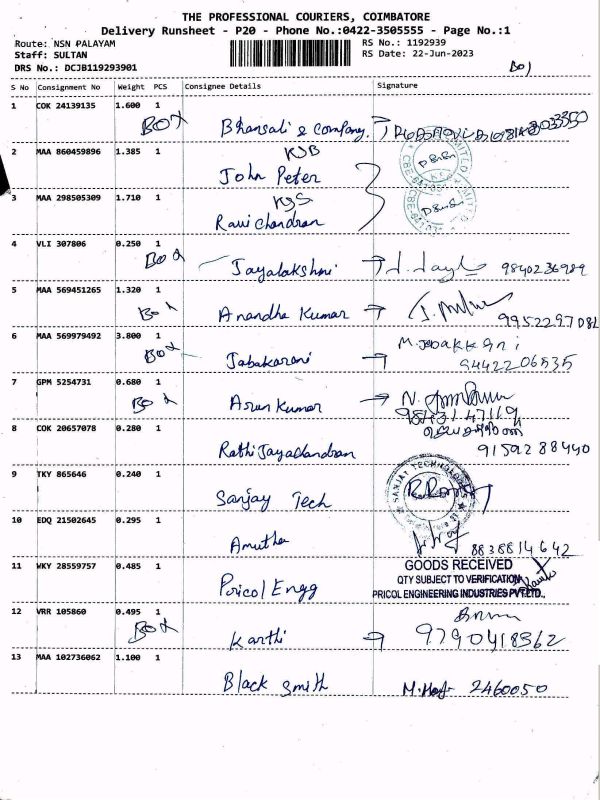 THE PROFESSIONAL COURIERS, COIMBATORE
Delivery Runsheet - P20 - Phone No.:0422-3505555 - Page No.:1
Route: NSN PALAYAM RS No.: 1192939
Staff: SULTAN RS Date: 22-Jun-2023
DRS No.: DCJB119293901
S No Consignment No Weight PCS Consignee Details Signature
1 COK 24139135 1.600 1
Box Bhansali & Company.
2 MAA 860459896 1.385 1 KJB
John Peter
3 MAA 298505309 1.710 1 KJS
Ravi Chandran
4 VLI 307806 0.250 1
Box Jayalakshmi → 9840236989
5 MAA 569451265 1.320 1
Box Anandha Kumar → 9952297082
6 MAA 569979492 3.800 1
Box Jabakarani → 9442206535
7 GPM 5254731 0.680 1
Box Arun Kumar → N.
9843147119
8 COK 20657078 0.280 1
Rathi Jayachandran 9159288440
9 TKY 865646 0.240 1
Sanjay Tech SANJAY TECHNOLOGIES
10 EDQ 21502645 0.295 1
Amutha 8838814642
11 WKY 28559757 0.485 1 GOODS RECEIVED
QTY SUBJECT TO VERIFICATION
Pricol Engg PRICOL ENGINEERING INDUSTRIES PVT.LTD.,
12 VRR 105860 0.495 1
Box Karthi → 9790418362
13 MAA 102736062 1.100 1
Black Smith 2460050